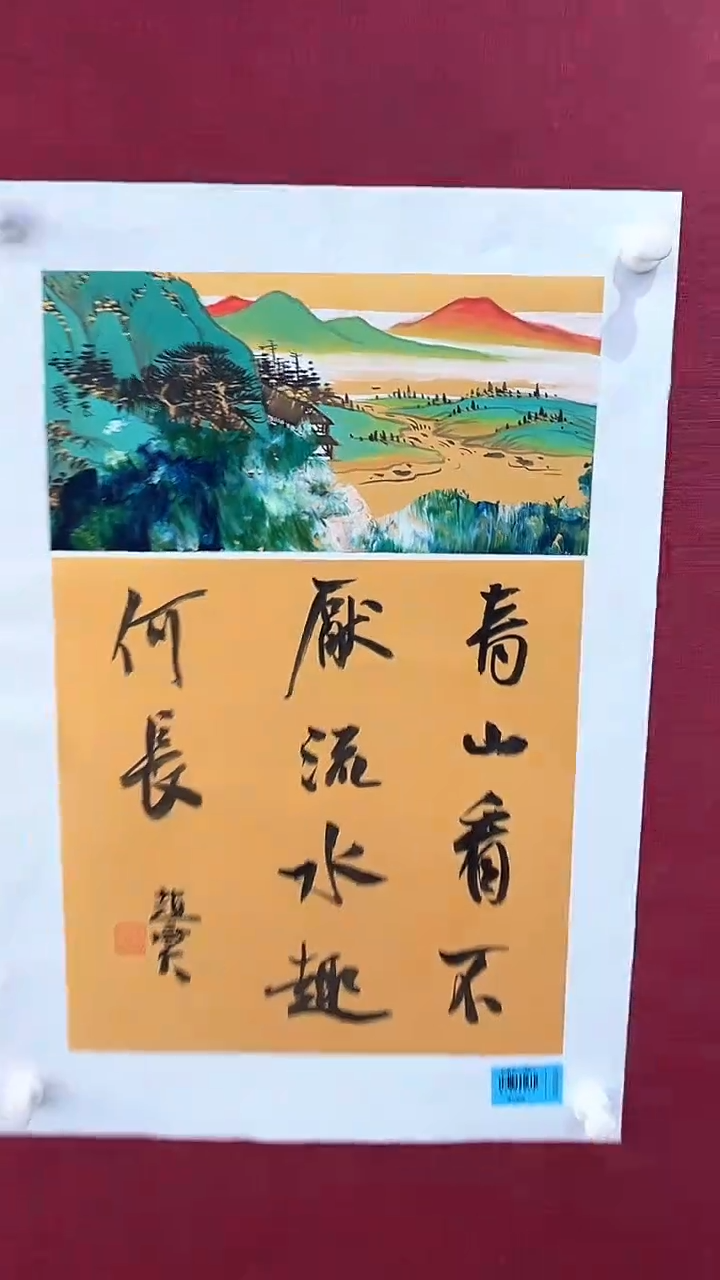 青山看不
厭流水趣
何長